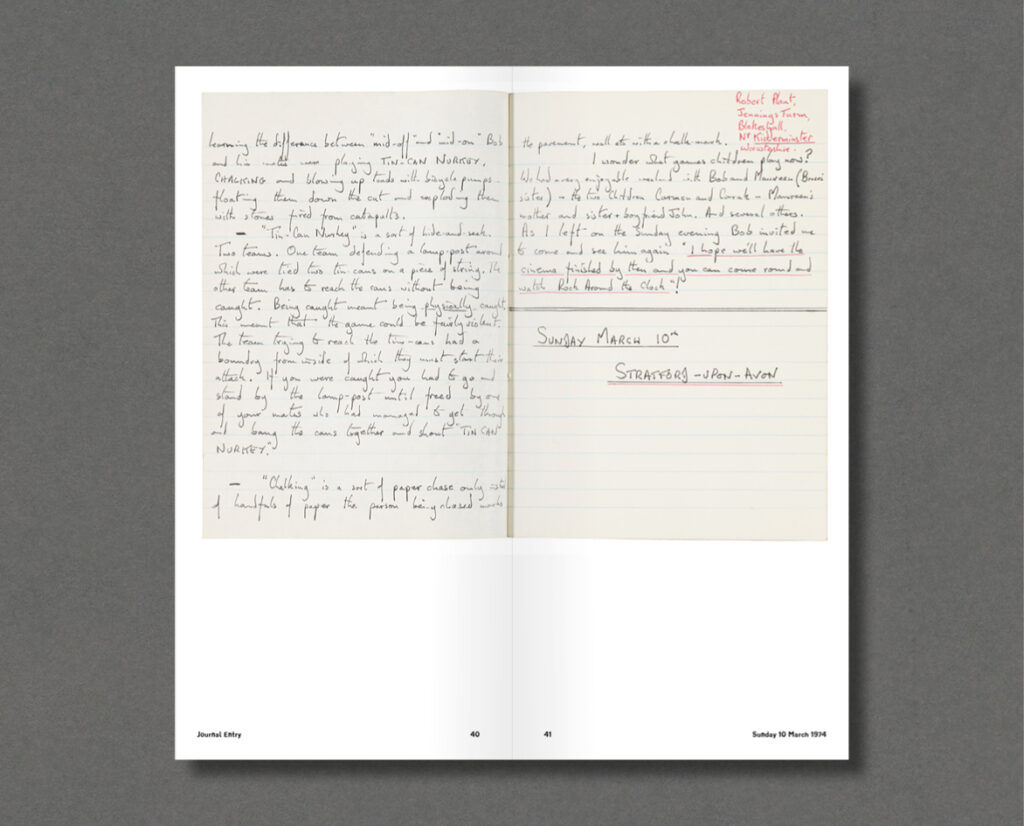 learning the difference between "mid-off" and "mid-on" Bob
and his mates were playing TIN-CAN NURKEY,
CHALKING and blowing up toads with bicycle pumps -
floating them down the cut and exploding them
with stones fired from catapults.
— "Tin-Can Nurkey" is a sort of hide-and-seek.
Two teams. One team defending a lamp-post around
which were tied two tin-cans on a piece of string. The
other team has to reach the cans without being
caught. Being caught meant being physically caught
This meant that the game could be fairly violent.
The team trying to reach the tin-cans had a
boundry from inside of which they must start their
attack. If you were caught you had to go and
stand by the lamp-post until freed by one
of your mates who had managed to get through
and bang the cans together and shout "TIN CAN
NURKEY."
— "Chalking" is a sort of paper chase only instead
of handfuls of paper the person being chased marks
Robert Plant,
Jennings Farm,
Blakeshall,
Nr Kidderminster
Worcestershire.
the pavement, wall etc with a chalk-mark.
I wonder what games children play now?
We had a very enjoyable weekend with Bob and Maureen (
sister) + the two children Carmen and - Maureen's
mother and sister + boyfriend John. And several others.
As I left on the Sunday evening Bob invited me
to come and see him again "I hope we'll have the
cinema finished by then and you can come round and
watch Rock Around the Clock"!
SUNDAY MARCH 10th
STRATFORD-UPON-AVON
Journal Entry
40
41
Sunday 10 March 1974